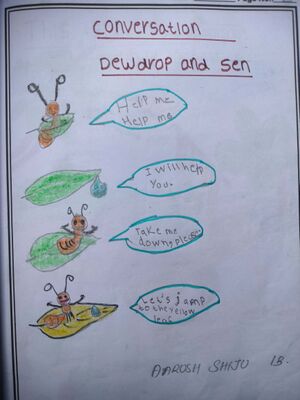 conversation
Dewdrop and sen
Help me
Help me
I will help
you.
Take me
down, please.
Let's jamp
to the yellow
leaf
AAROSH SHIJU 1B.